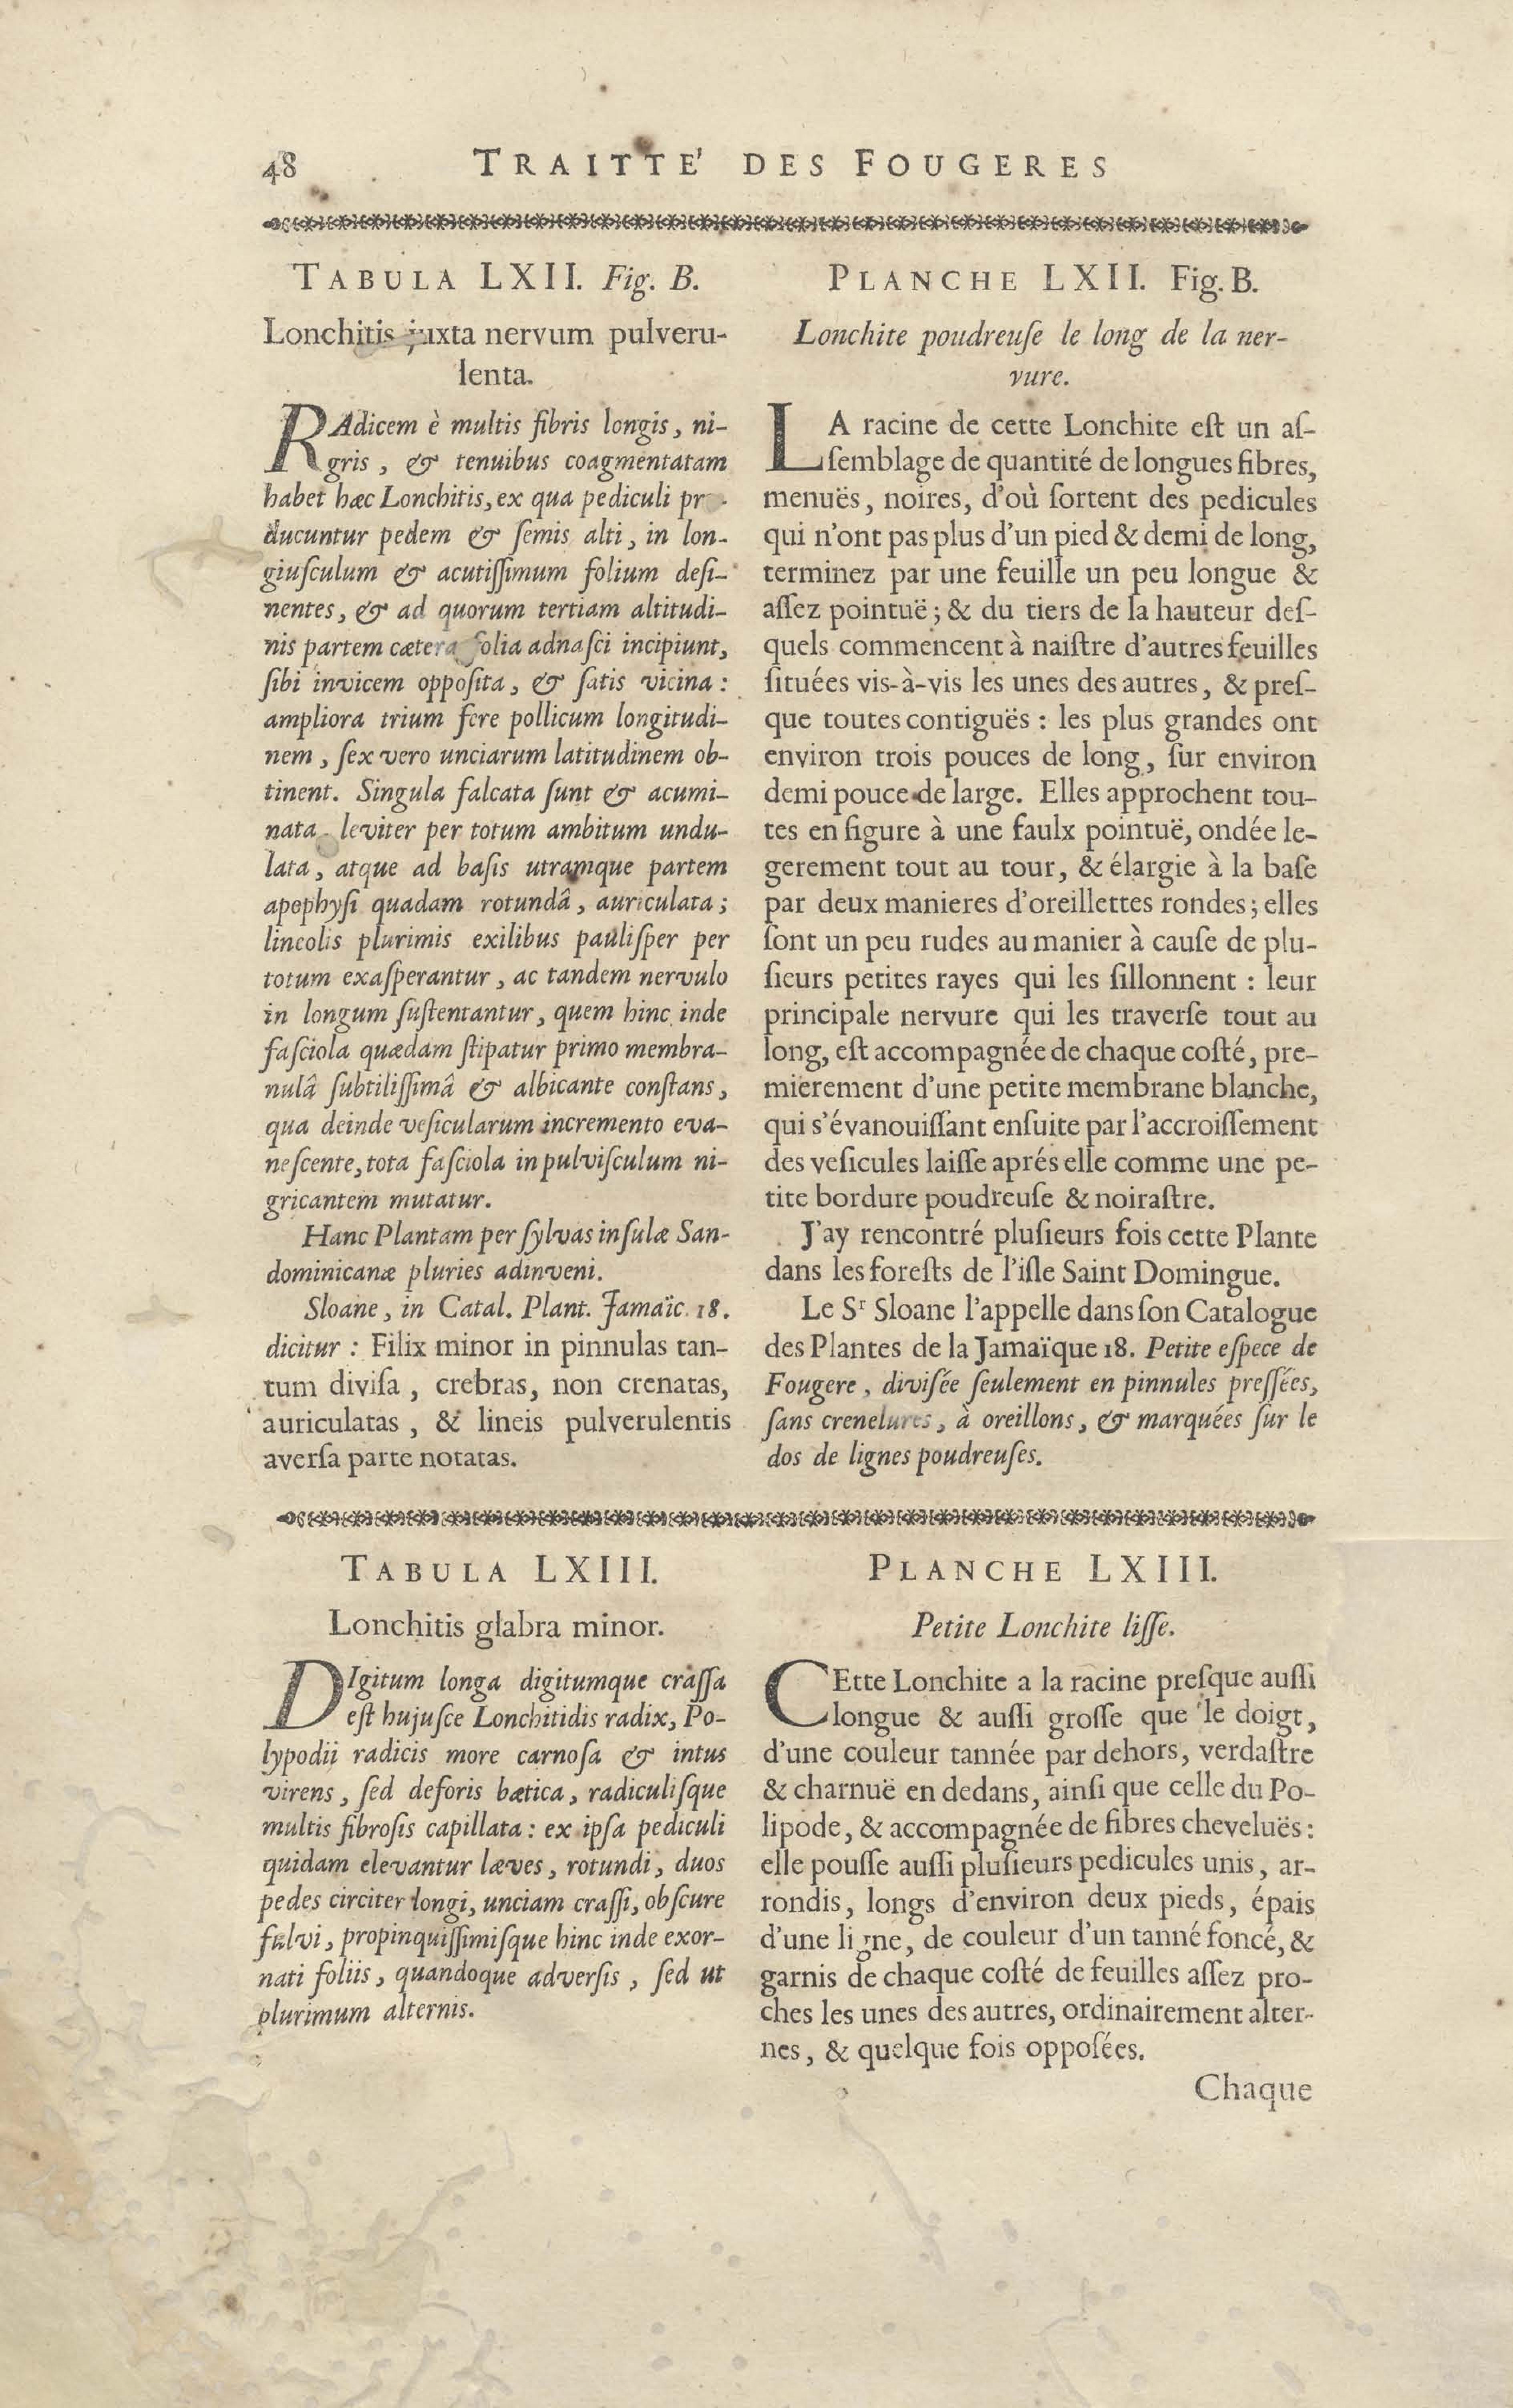 48 TRAITTE' DES FOUGERES
TABULA LXII. Fig. B.
Lonchitis juxta nervum pulveru-
lenta.
RAdicem è multis fibris longis, ni-
gris, & tenuibus coagmentatam
habet hæc Lonchitis, ex qua pediculi pro-
ducuntur pedem & ſemis alti, in lon-
giuſculum & acutiſſimum folium deſi-
nentes, & ad quorum tertiam altitudi-
nis partem cætera folia adnaſci incipiunt,
ſibi invicem oppoſita, & ſatis vicina:
ampliora trium fere pollicum longitudi-
nem, ſex vero unciarum latitudinem ob-
tinent. Singula falcata ſunt & acumi-
nata leviter per totum ambitum undu-
lata, atque ad baſis utramque partem
apophyſi quadam rotundâ, auriculata;
lineolis plurimis exilibus pauliſper per
totum exaſperantur, ac tandem nervulo
in longum ſuſtentantur, quem hinc inde
faſciola quædam ſtipatur primo membra-
nulâ ſubtiliſſimâ & albicante conſtans,
qua deinde veſicularum incremento eva-
neſcente, tota faſciola in pulviſculum ni-
gricantem mutatur.
Hanc Plantam per ſylvas inſulæ San-
dominicanæ pluries adinveni.
Sloane, in Catal. Plant. Jamaïc. 18.
dicitur: Filix minor in pinnulas tan-
tum diviſa, crebras, non crenatas,
auriculatas, & lineis pulverulentis
averſa parte notatas.
PLANCHE LXII. Fig. B.
Lonchite poudreuſe le long de la ner-
vure.
LA racine de cette Lonchite eſt un aſ-
ſemblage de quantité de longues fibres,
menuës, noires, d'où ſortent des pedicules
qui n'ont pas plus d'un pied & demi de long,
terminez par une feuille un peu longue &
aſſez pointuë; & du tiers de la hauteur deſ-
quels commencent à naiſtre d'autres feuilles
ſituées vis-à-vis les unes des autres, & preſ-
que toutes contiguës: les plus grandes ont
environ trois pouces de long, ſur environ
demi pouce de large. Elles approchent tou-
tes en figure à une faulx pointuë, ondée le-
gerement tout au tour, & élargie à la baſe
par deux manieres d'oreillettes rondes; elles
ſont un peu rudes au manier à cauſe de plu-
ſieurs petites rayes qui les ſillonnent: leur
principale nervure qui les traverſe tout au
long, eſt accompagnée de chaque coſté, pre-
mierement d'une petite membrane blanche,
qui s'évanouiſſant enſuite par l'accroiſſement
des veſicules laiſſe aprés elle comme une pe-
tite bordure poudreuſe & noiraſtre.
J'ay rencontré pluſieurs fois cette Plante
dans les foreſts de l'iſle Saint Domingue.
Le Sr Sloane l'appelle dans ſon Catalogue
des Plantes de la Jamaïque 18. Petite eſpece de
Fougere, diviſée ſeulement en pinnules preſſées,
ſans crenelures, à oreillons, & marquées ſur le
dos de lignes poudreuſes.
TABULA LXIII.
Lonchitis glabra minor.
DIgitum longa digitumque craſſa
eſt hujuſce Lonchitidis radix, Po-
lypodii radicis more carnoſa & intus
virens, ſed deforis bætica, radiculiſque
multis fibroſis capillata: ex ipſa pediculi
quidam elevantur læves, rotundi, duos
pedes circiter longi, unciam craſſi, obſcure
fulvi, propinquiſſimiſque hinc inde exor-
nati foliis, quandoque adverſis, ſed ut
plurimum alternis.
PLANCHE LXIII.
Petite Lonchite liſſe.
CEtte Lonchite a la racine preſque auſſi
longue & auſſi groſſe que le doigt,
d'une couleur tannée par dehors, verdaſtre
& charnuë en dedans, ainſi que celle du Po-
lipode, & accompagnée de fibres cheveluës:
elle pouſſe auſſi pluſieurs pedicules unis, ar-
rondis, longs d'environ deux pieds, épais
d'une ligne, de couleur d'un tanné foncé, &
garnis de chaque coſté de feuilles aſſez pro-
ches les unes des autres, ordinairement alter-
nes, & quelque fois oppoſées.
Chaque